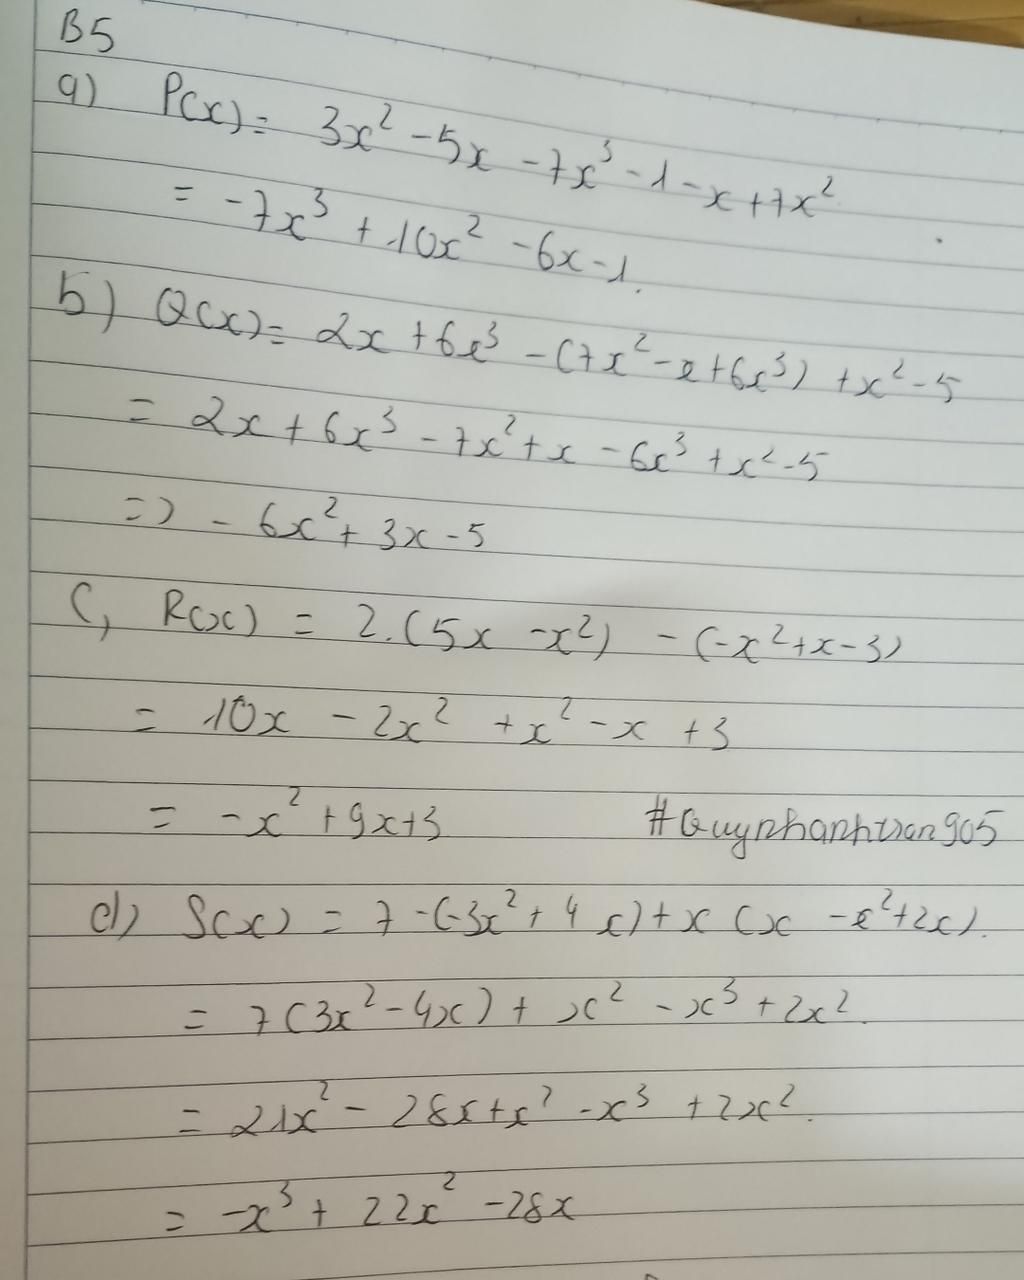 B5
a) P(x) = 3x² - 5x - 7x³ - 1 - x + 7x²
= -7x³ + 10x² - 6x - 1.
b) Q(x) = 2x + 6x³ - (7x² - x + 6x³) + x² - 5
= 2x + 6x³ - 7x² + x - 6x³ + x² - 5
=> - 6x² + 3x - 5
C, R(x) = 2.(5x - x²) - (-x² + x - 3)
= 10x - 2x² + x² - x + 3
= -x² + 9x + 3 #Quynhanhtrang905
d) S(x) = 7 - (-3x² + 4x) + x (x - x² + 2x).
= 7(3x² - 4x) + x² - x³ + 2x².
= 21x² - 28x + x² - x³ + 2x².
= -x³ + 22x² - 28x